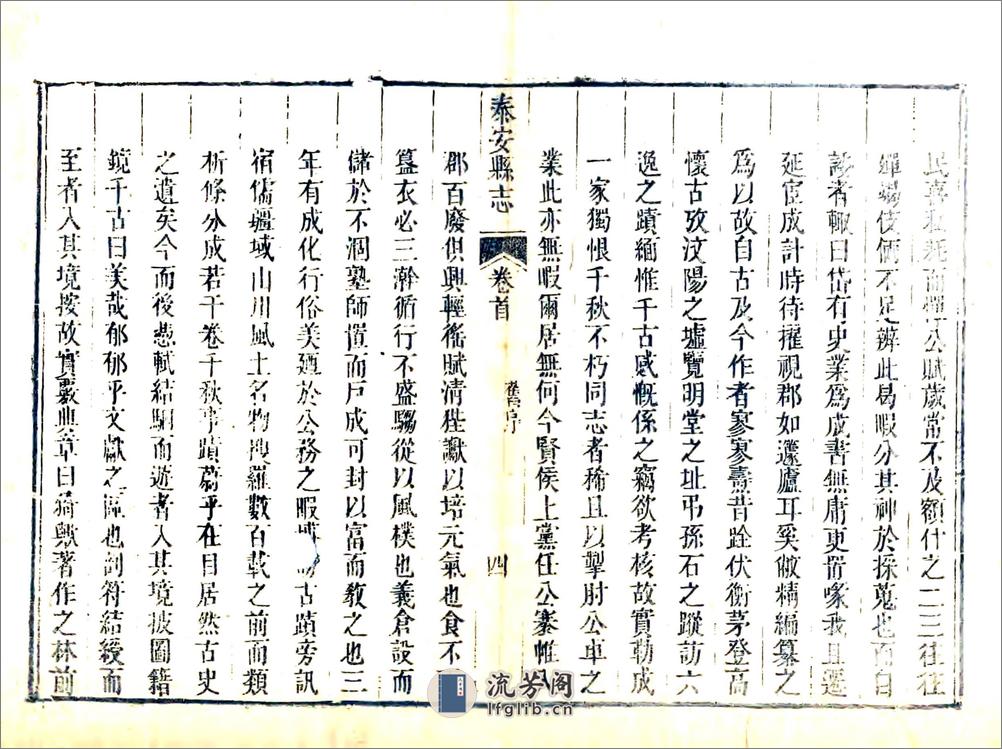 民喜私耗而憚公賦歲常不及額什之二三往往
殫竭伎倆不足辨此曷暇分其神於採蒐也而自
諉者輙曰岱有史業爲成書無庸更置喙我且遷
延宦成計時待擢視郡如蘧廬耳奚做精編纂之
爲以故自古及今作者寥寥壽昔跧伏衡茅登高
懷古攷汶陽之墟覽明堂之址弔孫石之蹤訪六
逸之蹟緬惟千古感慨係之竊欲考核故實勒成
一家獨恨千秋不朽同志者稀且以掣肘公車之
業此亦無暇爾居無何今賢侯上黨任公褰帷
泰安縣志
卷首
舊序
四
郡百廢俱興輕徭賦清狴獄以培元氣也食不二
簋衣必三澣循行不盛騶從以風樸也義倉設而
儲於不涸塾師置而戶成可封以富而教之也三
年有成化行俗美廼於公務之暇博古蹟旁訊
宿儒疆域山川風土名物搜羅數百載之前而類
析條分成若干卷千秋事蹟蔚乎在目居然古史
之遺矣今而後憑軾結駟而遊者入其境披圖籍
鏡千古曰美哉郁郁乎文獻之區也剖符結綬而
至者入其境按故實覈典章曰猗歟著作之林前
流芳阁
lfglib.cn